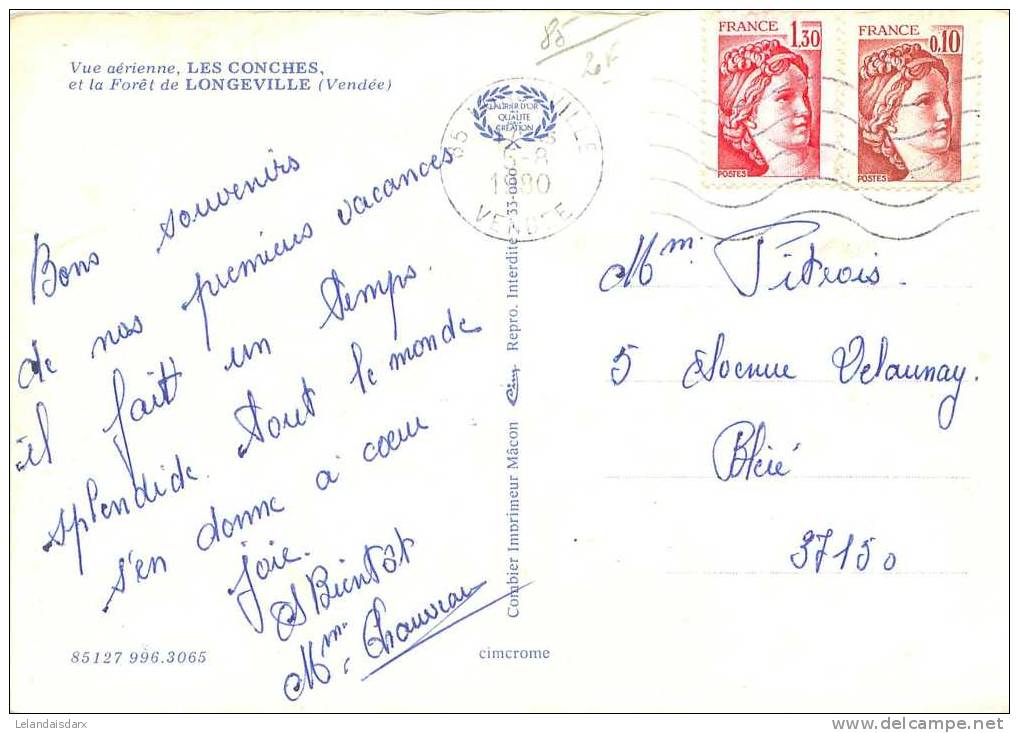 Vue aérienne, LES CONCHES,
et la Forêt de LONGEVILLE (Vendée)
Bons souvenirs
de nos premières vacances
il fait un temps
splendide. tout le monde
s'en donne à coeur
joie.
A Bientôt
Mme Chauveau
85127 996.3065
cimcrome
Combier Imprimeur Mâcon Cim Repro. Interdite
LAURIER D'OR
QUALITÉ
CRÉATION
85
1980
VENDEE
85
2f
FRANCE
1,30
POSTES
FRANCE
0,10
POSTES
Mme Pitrois.
5 Avenue Delaunay.
Bléré
37150
Lelandaisdarx
www.delcampe.net